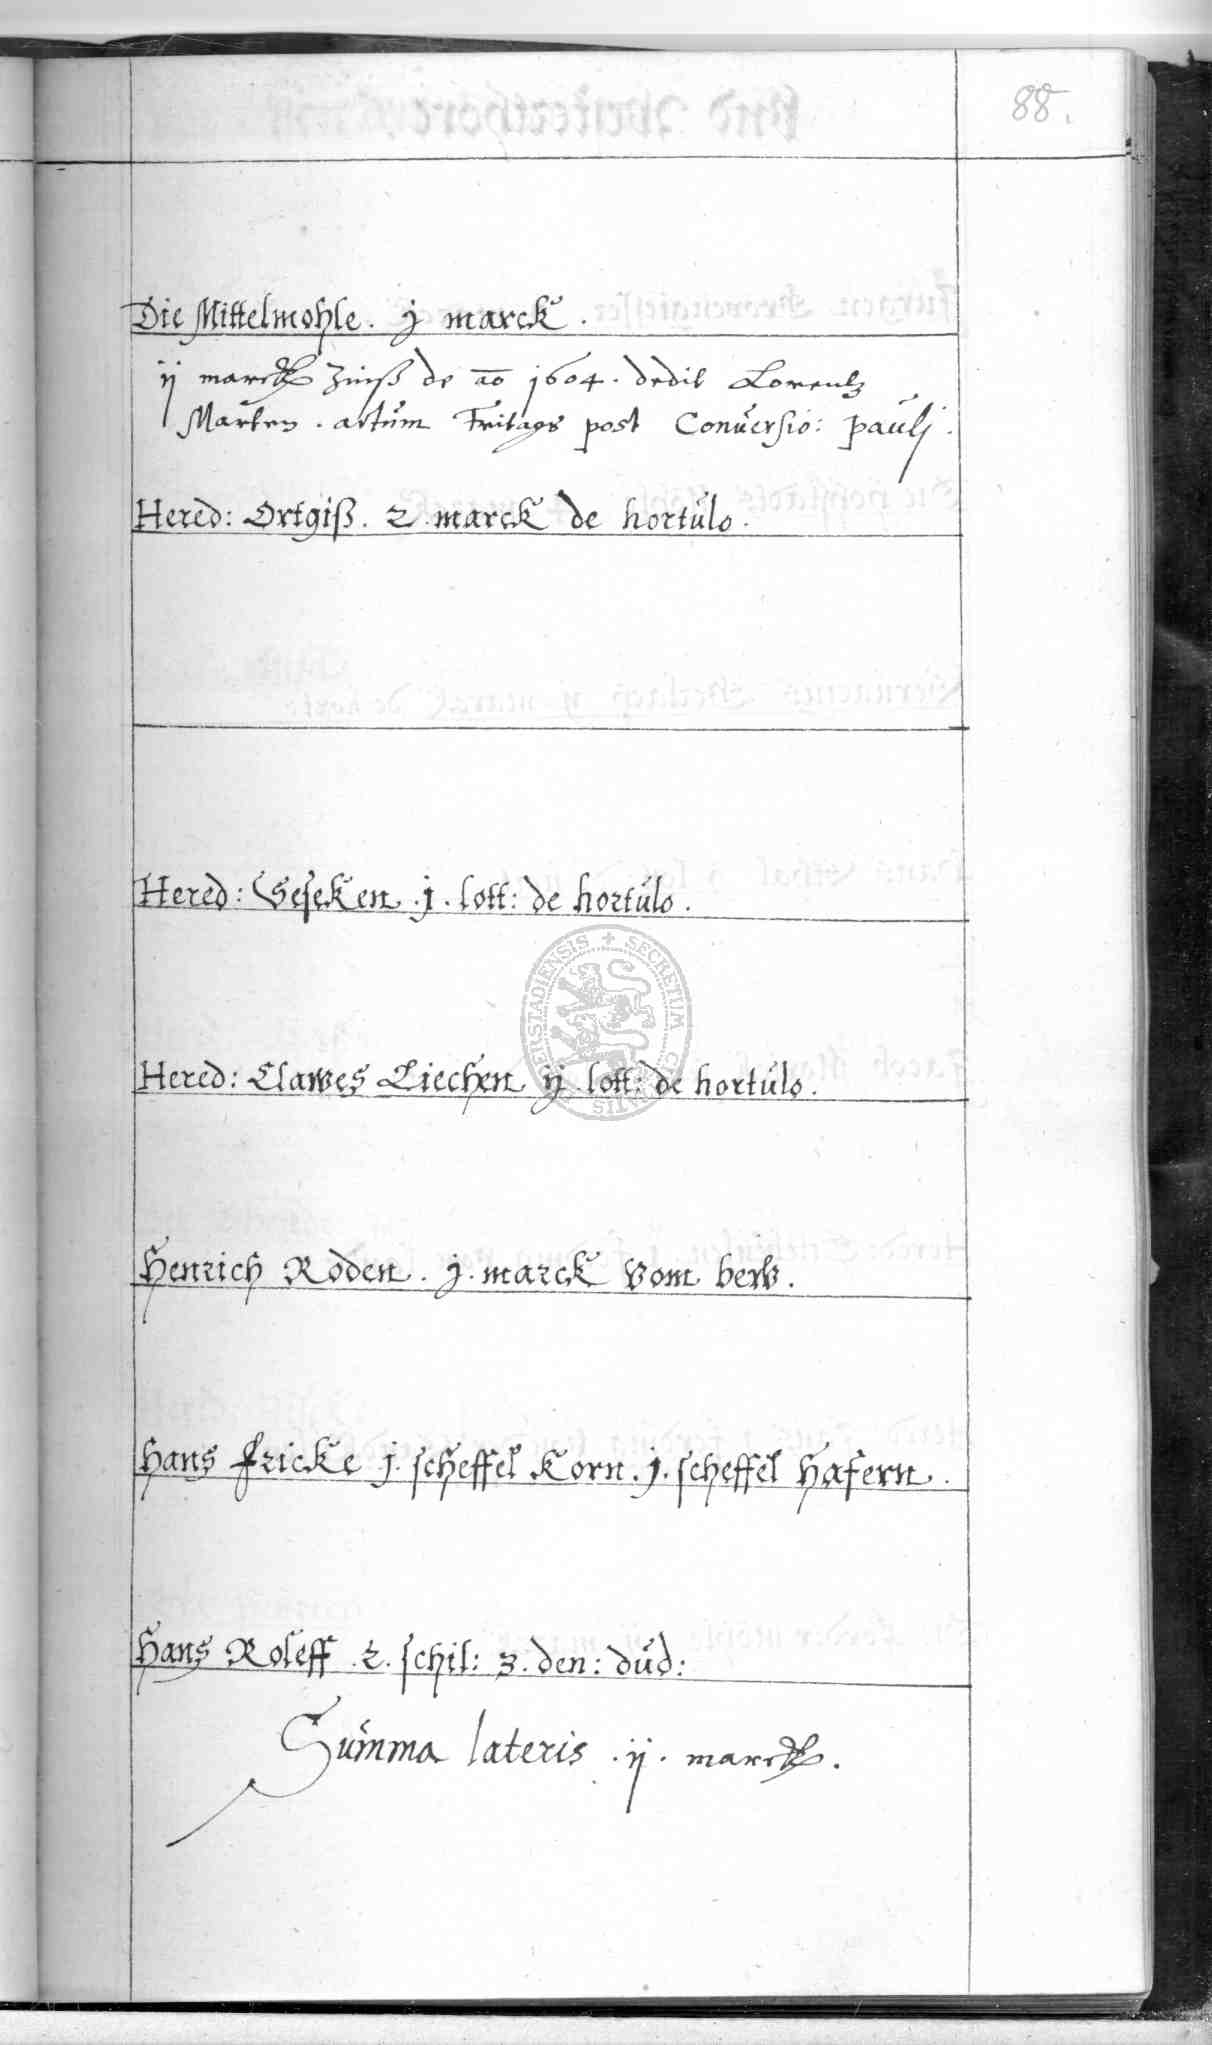 88.
Die Mittelmohle. j marck.
ij marck Zinß de ao 1604. dedit Lorentz
Marten. actum Fritags post Conuersio: pauli.
Hered: Ortgiß. 2. marck de hortulo.
Hered: Geseken. j. lott: de hortulo.
SECRETUM
Hered: Clawes Ciechen ij lott: de hortulo.
Henrich Roden. j. marck vom
Hans fricke j. scheffel Korn. j. scheffel Hafern.
Hans Roleff. 2. schil: 3. den: dud:
Summa lateris. ij. marck.